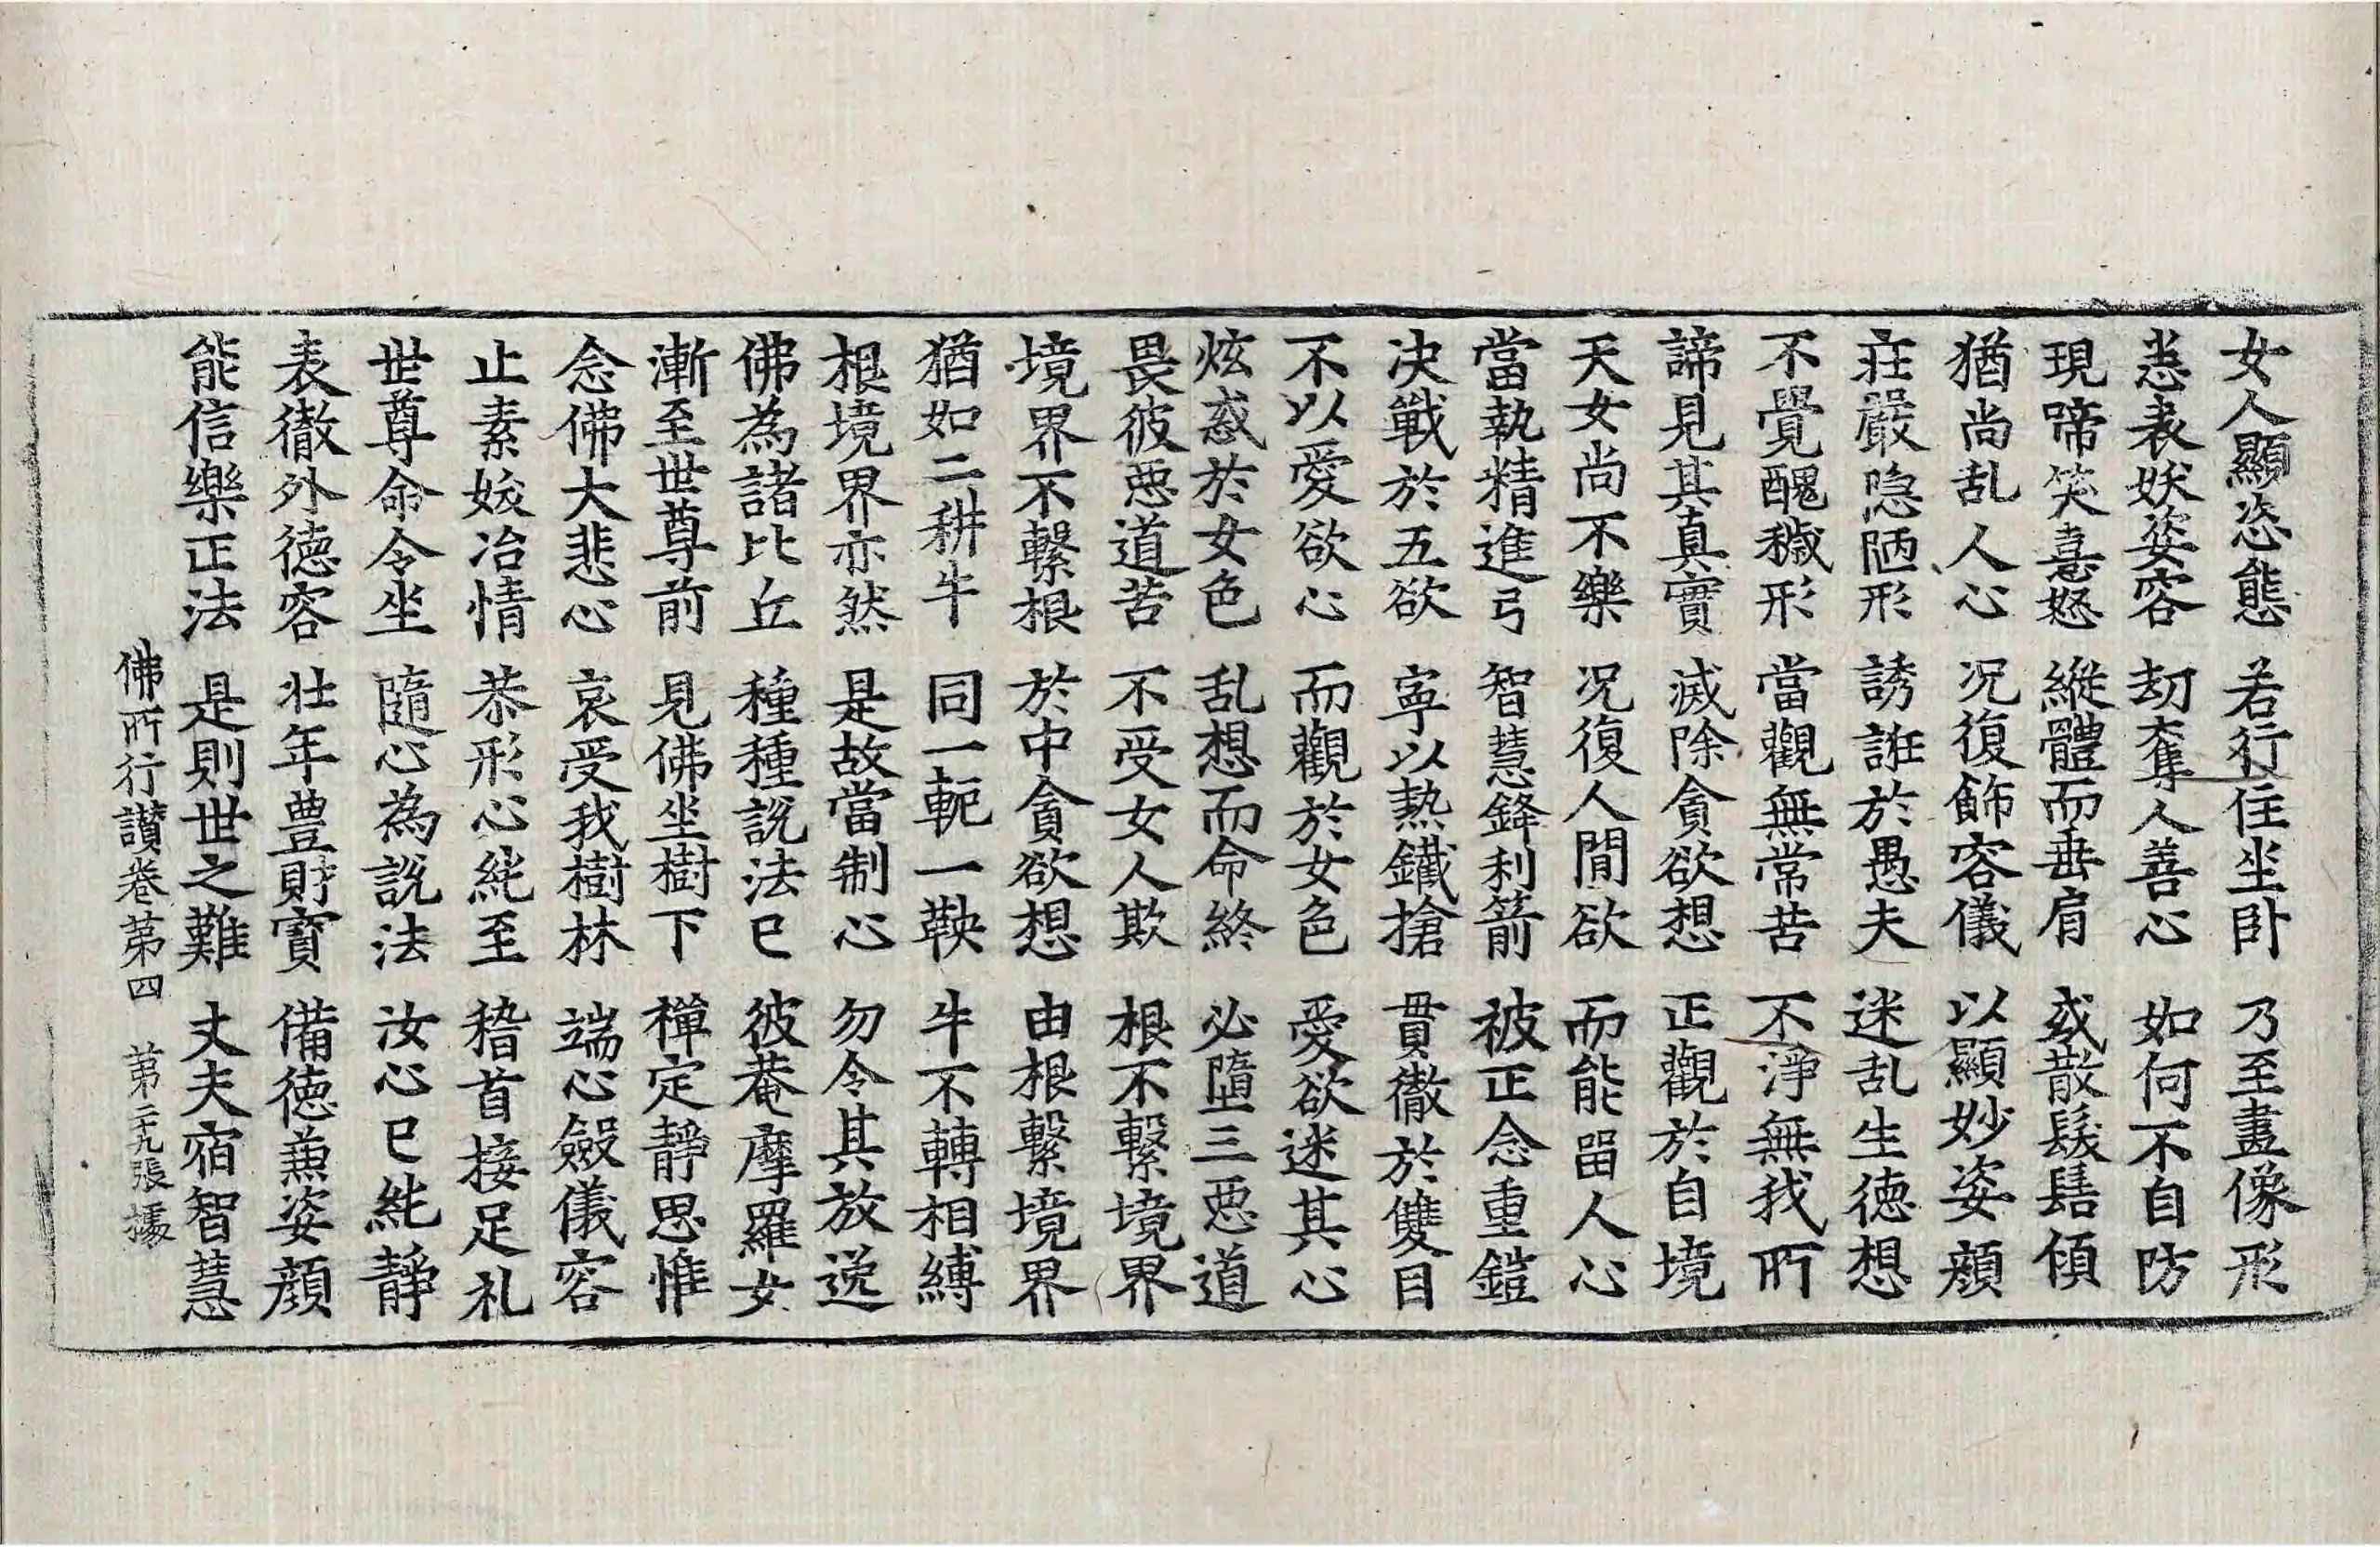 女人顯恣態 若行住坐臥 乃至畫像形
悉表妖姿容 劫奪人善心 如何不自防
現啼笑喜怒 縱體而垂肩 或散髮髻傾
猶尚乱人心 况復飾容儀 以顯妙姿顏
莊嚴隐陋形 誘誑於愚夫 迷乱生德想
不覺醜穢形 當觀無常苦 不淨無我所
諦見其真實 滅除貪欲想 正觀於自境
天女尚不樂 况復人間欲 而能留人心
當執精進弓 智慧鋒利箭 被正念重鎧
决戰於五欲 寧以熱鐵搶 貫徹於雙目
不以愛欲心 而觀於女色 愛欲迷其心
炫惑於女色 乱想而命終 必墮三惡道
畏彼惡道苦 不受女人欺 根不繫境界
境界不繫根 於中貪欲想 由根繫境界
猶如二耕牛 同一軛一鞅 牛不轉相縛
根境界亦然 是故當制心 勿令其放逸
佛為諸比丘 種種說法已 彼菴摩羅女
漸至世尊前 見佛坐樹下 禪定靜思惟
念佛大悲心 哀受我樹林 端心斂儀容
止素妖冶情 恭形心純至 稽首接足礼
世尊命令坐 隨心為說法 汝心已純靜
表徹外德容 壯年豊財寶 備德兼姿顏
能信樂正法 是則世之難 丈夫宿智慧
佛所行讃卷第四 第二十九張 據